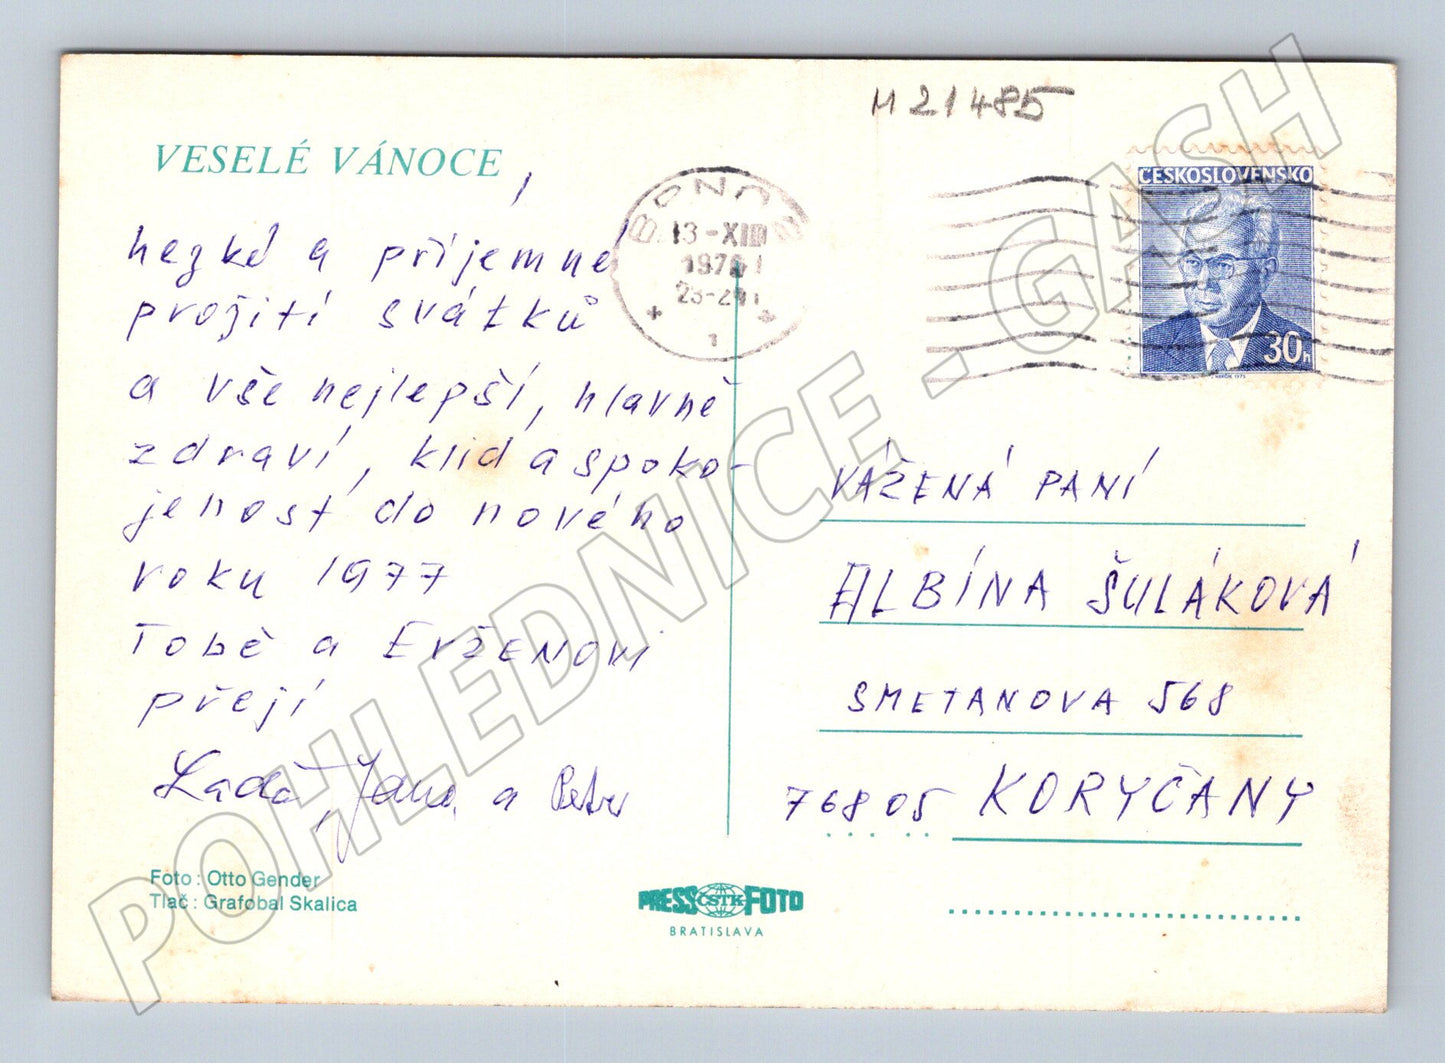 M 21485
VESELÉ VÁNOCE,
hezké a příjemné
prožití svátků
a vše nejlepší, hlavně
zdraví, klid a spoko-
jenost do nového
roku 1977
Tobě a EVŽENOVI
přejí
Laďa, Jana a Petr
Foto: Otto Gender
Tlač: Grafobal Skalica
13-XII
1976
23-24
1
ČESKOSLOVENSKO
30h
VÁŽENÁ PANÍ
ALBÍNA ŠULÁKOVÁ
SMETANOVA 568
76805 KORYČANY
PRESS ČSTK FOTO
BRATISLAVA
POHLEDNICE - GASH